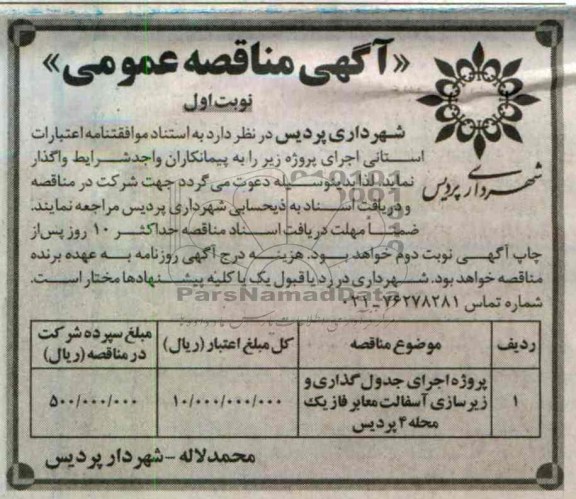 «آگهی مناقصه عمومی»
نوبت اول
شهرداری پردیس
شهرداری پردیس در نظر دارد به استناد موافقتنامه اعتبارات
استانی اجرای پروژه زیر را به پیمانکاران واجد شرایط واگذار
نماید. لذا بدینوسیله دعوت می گردد جهت شرکت در مناقصه
و دریافت اسناد به ذیحسابی شهرداری پردیس مراجعه نمایند.
ضمناً مهلت دریافت اسناد مناقصه حداکثر ۱۰ روز پس از
چاپ آگهی نوبت دوم خواهد بود. هزینه درج آگهی روزنامه به عهده برنده
مناقصه خواهد بود. شهرداری در رد یا قبول یک یا کلیه پیشنهادها مختار است.
شماره تماس ۷۶۲۷۸۲۸۱-۰۲۱
ParsNamadData
ردیف موضوع مناقصه کل مبلغ اعتبار (ریال) مبلغ سپرده شرکت
در مناقصه (ریال)
۱ پروژه اجرای جدول گذاری و
زیرسازی آسفالت معابر فاز یک
محله ۴ پردیس ۱۰/۰۰۰/۰۰۰/۰۰۰ ۵۰۰/۰۰۰/۰۰۰
محمد لاله - شهردار پردیس